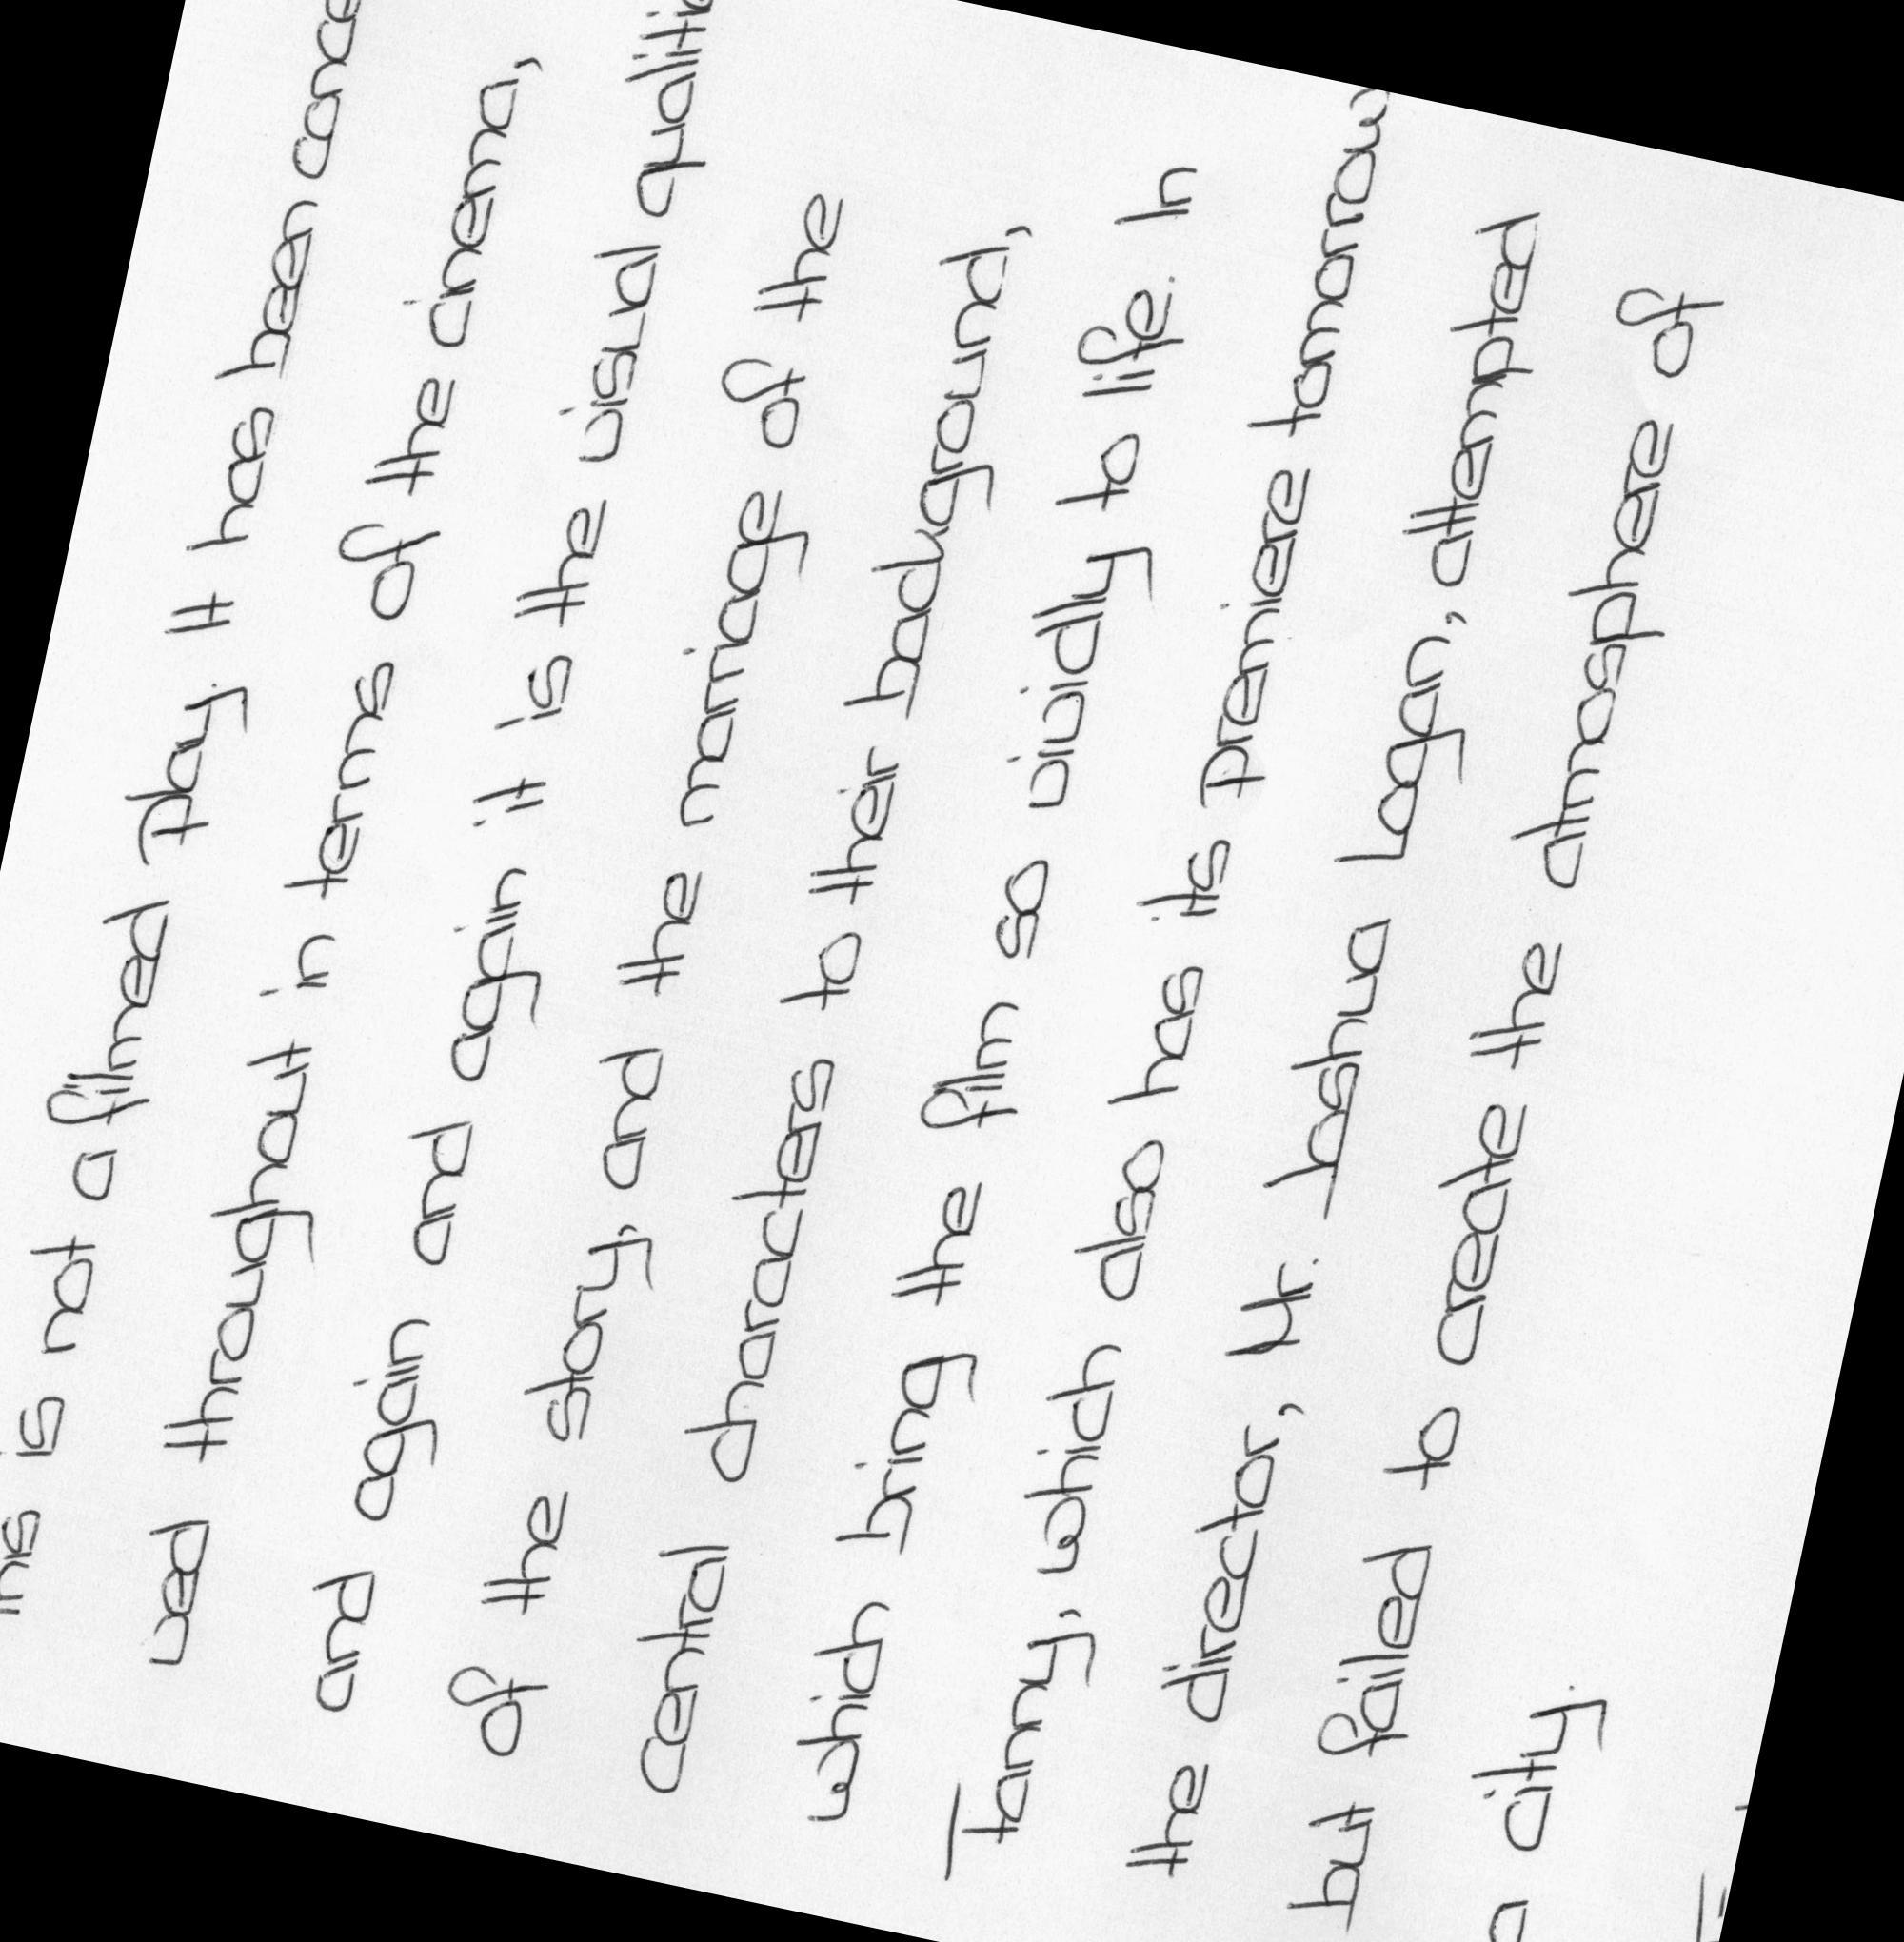 is not a filmed play. It has been
ved throughout in terms of the cinema,
and again and again it is the visual
of the story, and the marriage of the
central characters to their background,
which bring the film so vividly to life. In
Fanny, which also has its premiere tomorrow
the director, Mr. Joshua Logan, attempted
but failed to create the atmosphere of
a city.